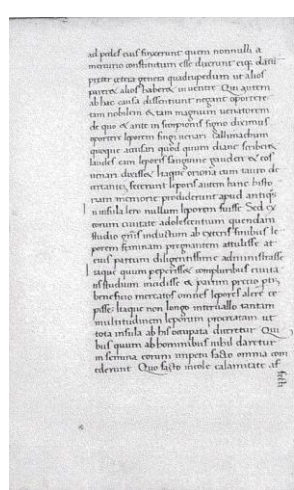 ad pedes eius finxerunt quem nonnulli a
mercurio constitutum esse dixerunt eiq; datū
preter cetera genera quadrupedum ut alios
pareret alios haberet in ventre Qui autem
ab hac causa dissentiunt negant oportere
tam nobilem & tam magnum uenatorem
de quo & ante in scorpionis signo diximus
oportere leporem fingi uenari callimachum
quoque accusari quod quum diane scriberet
laudes eam leporis sanguine gaudere & eos
uenari dixisset Itaque oriona cum tauro de
certantem fecerunt leporis autem hanc histo
riam memorie prodiderunt apud antiq̄s
n insula lero nullum leporem fuisse Sed ex
eorum ciuitate adolescentum quendam
studio gn̄is inductum ab exteris finibus le
porem feminam pregnantem attulisse at
eius partum diligentissime administrasse
taque quum peperisset compluribus ciuita
tis studium incidisse & partim precio ptī
beneficio mercatos omnes lepores alere ce
pisse Itaque non longo interuallo tantam
multitudinem leporum procreatam ut
tota insula ab his occupata diceretur Qui
bus quum ab hominibus nihil daretur
in semina eorum impetu facto omnia com
ederunt Quo facto incole calamitate af
ficti